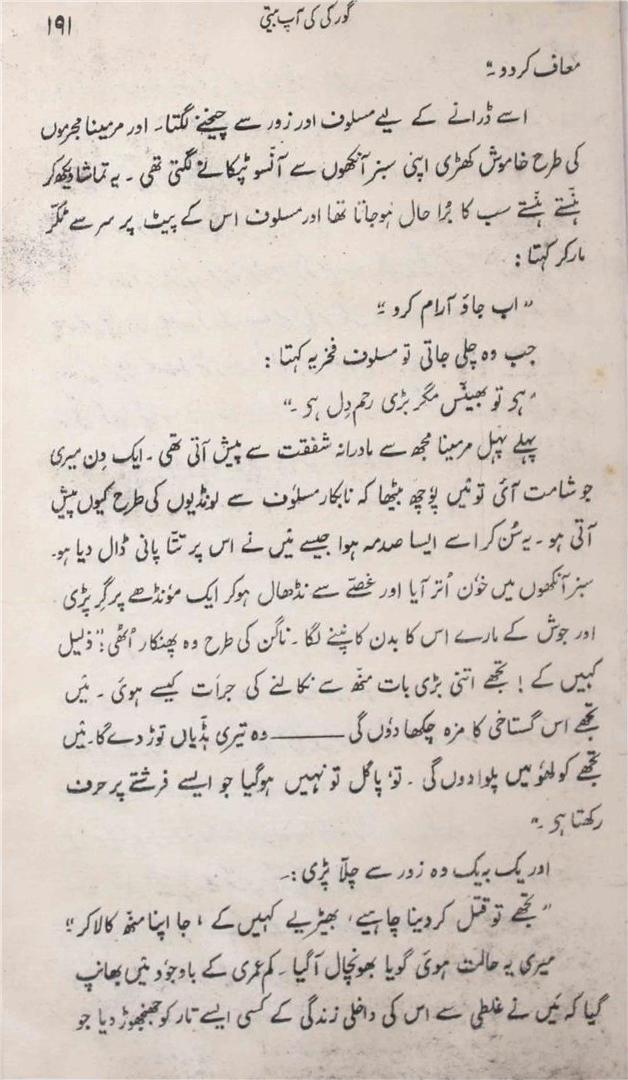 گورکی کی آپ بیتی
۱۹۱
معاف کردو۔"
اسے ڈرانے کے لیے مسلوف اور زور سے چیخنے لگتا۔ اور مرمینا مجرموں
کی طرح خاموش کھڑی اپنی سبز آنکھوں سے آنسو ٹپکانے لگتی تھی۔ یہ تماشا دیکھ کر
ہنستے ہنستے سب کا بُرا حال ہوجاتا تھا اور مسلوف اس کے پیٹ پر سر سے ٹکّر
مارکر کہتا:
"اب جاؤ آرام کرو۔"
جب وہ چلی جاتی تو مسلوف فخریہ کہتا:
"ہی تو بھینّس مگر بڑی رحم دِل ہی۔"
پہلے پہل مرمینا مجھ سے مادرانہ شفقت سے پیش آتی تھی۔ ایک دِن میری
جو شامت آئی تو مَیں پوٗچھ بیٹھا کہ نابکار مسلوف سے لونڈیوں کی طرح کیوں پیش
آتی ہو۔ یہ سُن کر اسے ایسا صدمہ ہوا جیسے مَیں نے اس پر تتّا پانی ڈال دیا ہو۔
سبز آنکھوں میں خوٗن اُتر آیا اور غصّے سے نڈھال ہوکر ایک موٗنڈھے پر گر پڑی
اور جوش کے مارے اس کا بدن کانپنے لگا۔ ناگن کی طرح وہ پھنکار اُٹھی: "ذلیل
کہیں کے! تجھے اتنی بڑی بات منھ سے نکالنے کی جرأت کیسے ہوئی۔ مَیں
تجھے اس گستاخی کا مزہ چکھا دوٗں گی ــــــــــ وہ تیری ہڈّیاں توڑ دے گا۔ مَیں
تجھے کولھوٗ میں پلوادوں گی۔ توٗ پاگل تو نہیں ہوگیا جو ایسے فرشتے پر حرف
رکھتا ہی۔"
اور یک بہ یک وہ زور سے چلّا پڑی:۔
"تجھے تو قتل کردینا چاہیے، بھیڑیے کہیں کے، جا اپنا منھ کالا کر"!
میری یہ حالت ہوئی گویا بھونچال آگیا۔ کم عمری کے باوجوٗد مَیں بھانپ
گیا کہ مَیں نے غلطی سے اس کی داخلی زندگی کے کسی ایسے تار کو جھنجھوڑ دیا جو